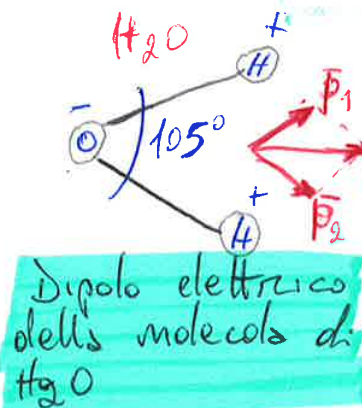 H₂O
+
H
-
O
105°
p̄₁
+
H
p̄₂
Dipolo elettrico
della molecola di
H₂O